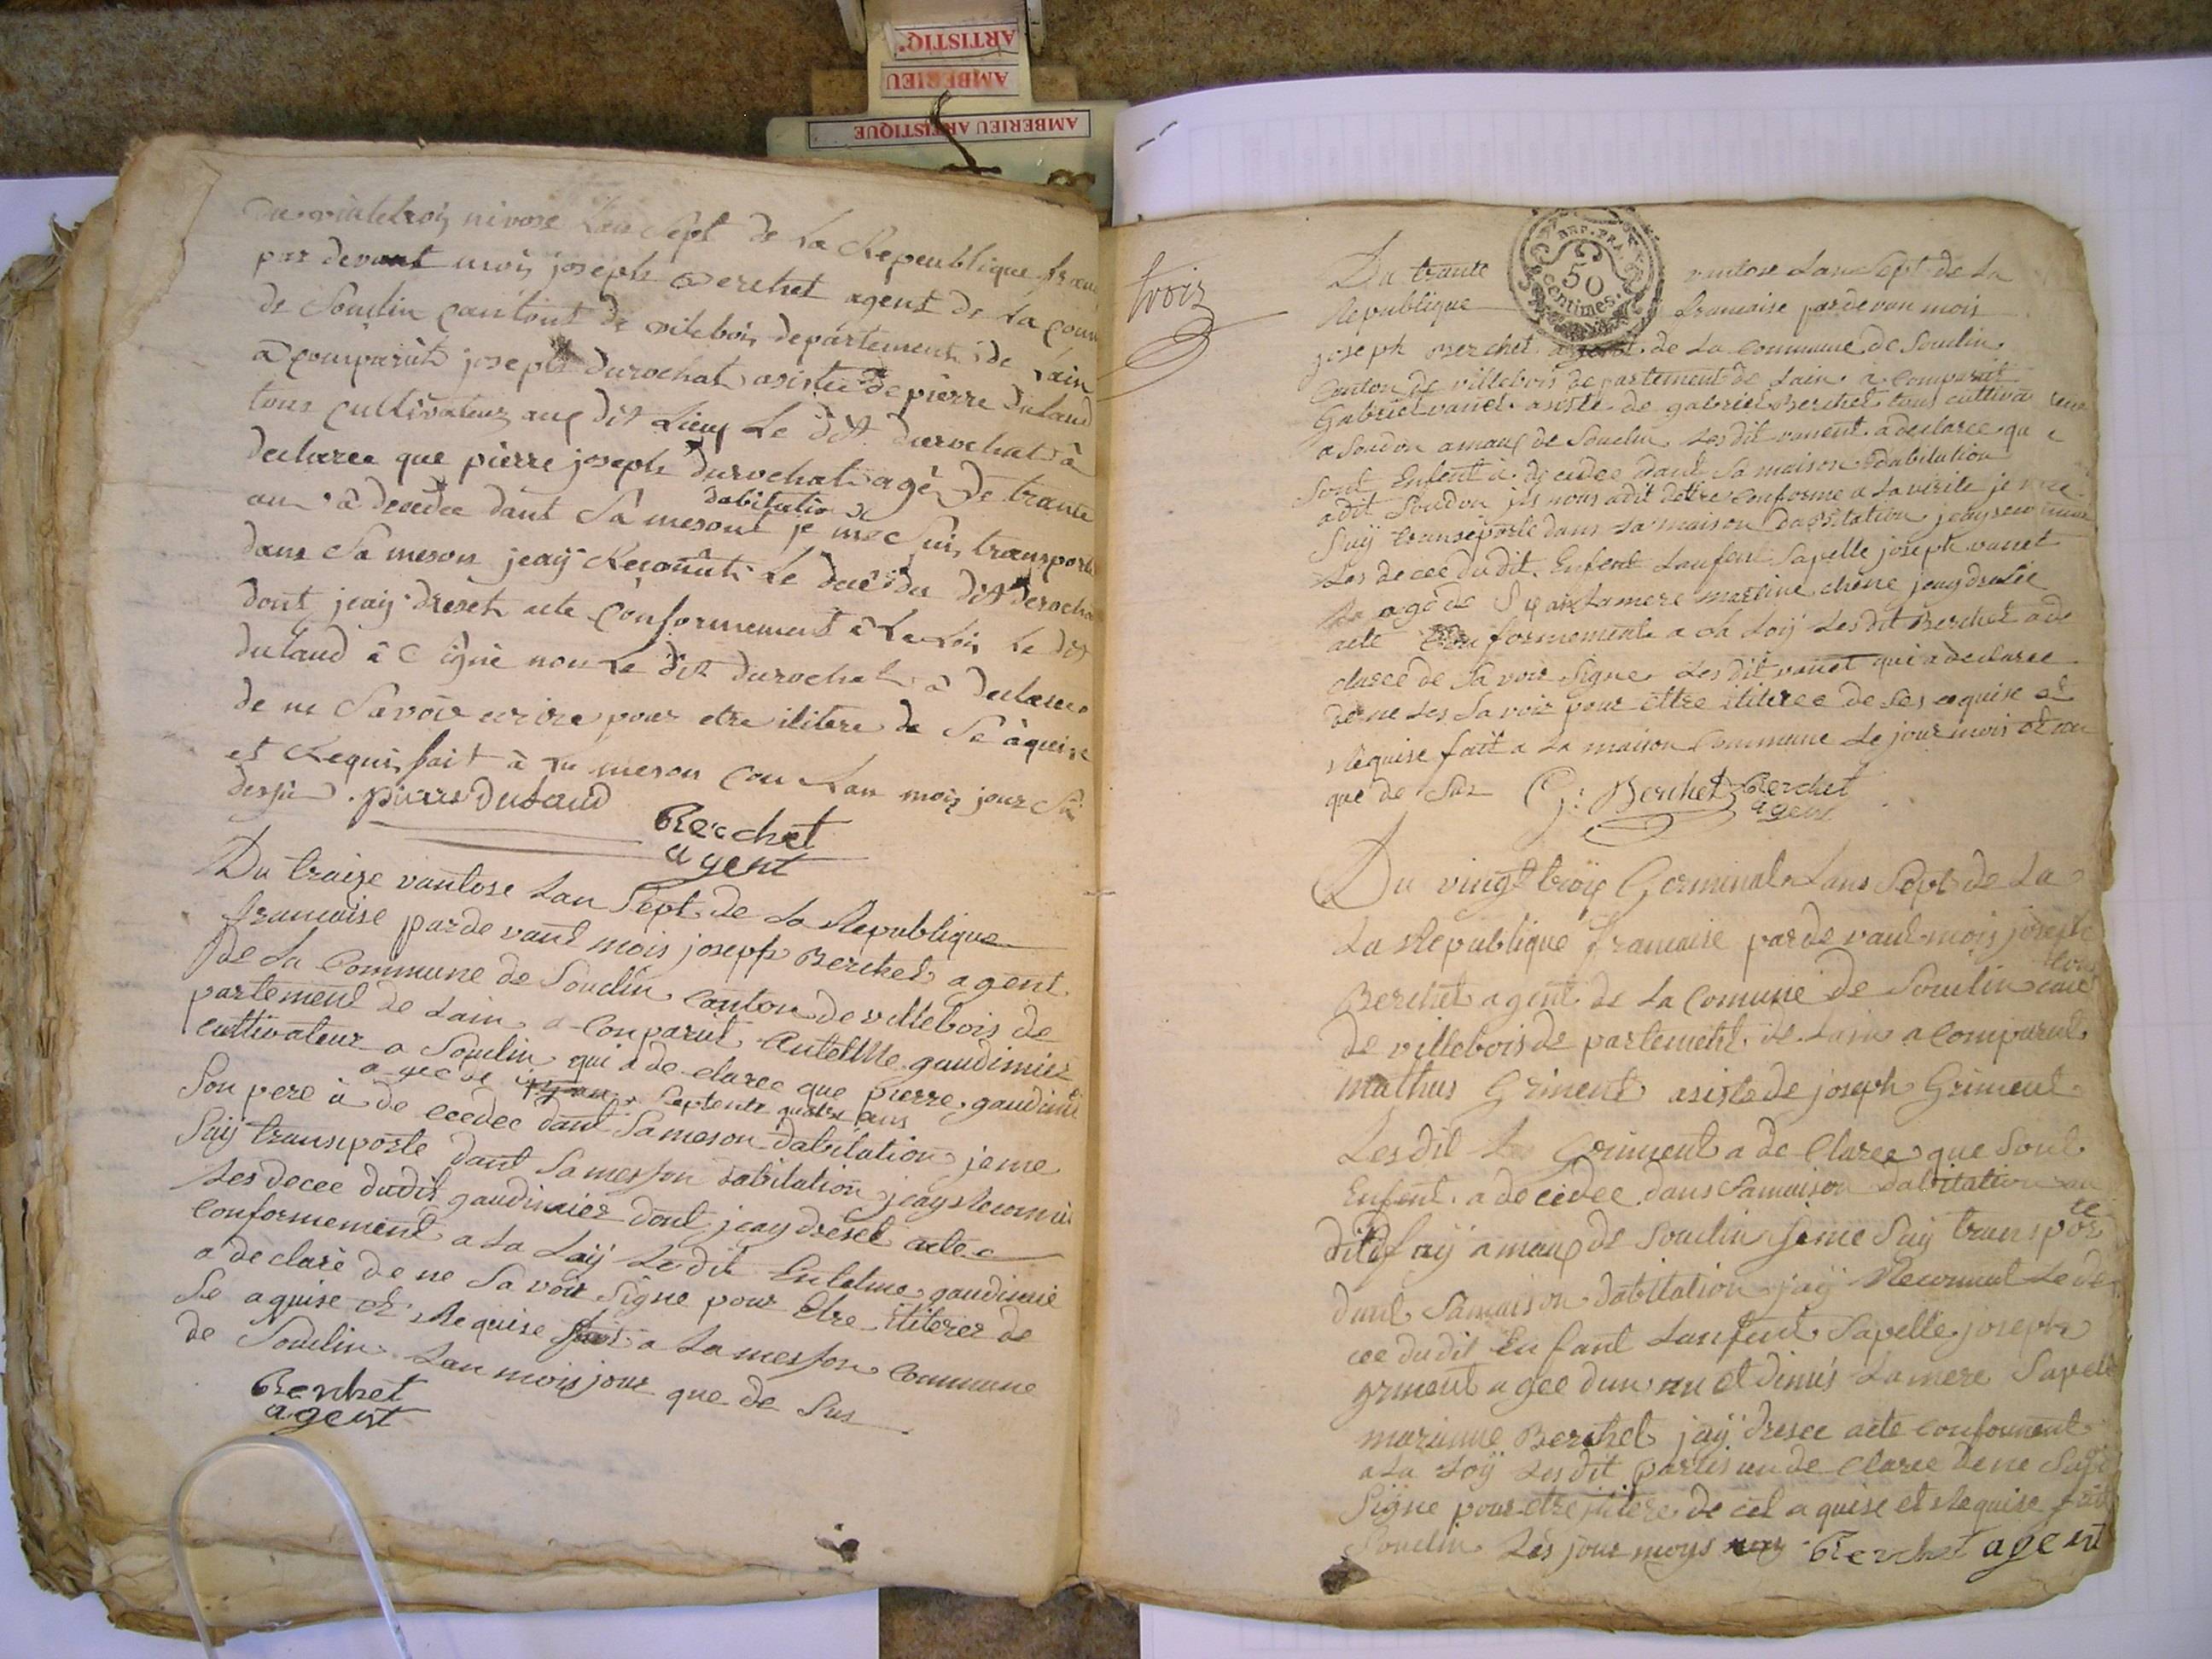 ARTISTIQ'
AMBERIEU
AMBERIEU ARTISTIQUE
du nivose Lan Sept de La Republique
par devant mois joseph Berchet agent de La
de Souclin Cantont de vilebois departement de Lain
a comparut joseph durochat asistée de pierre dulaud
tous cultivateur au dit Lieux Le dit durochat à
declaree que pierre joseph durochat agè de trante
dabitation
an à decedee dant Sa mesont je me Suis transporte
dans Sa meson jeay Le du dit
dont jeaiy dreset acte conformement a La Lois Le dit
dulaud à Cigné non Le dit durochat à
de ne Savoir ecrire pour etre ilitere de Se àquise
et Requis fait à La meson Lan mois jour
pierre dulaud
Berchet
agent
Du traize vantose Lan Sept de La Republique
francaise parde vant mois joseph Berchet agent
de La Commune de Souclin Canton de villebois de
partement de Lain a Conparut Antelme gaudimier
cultivateur a Souclin qui a de claree que pierre
agee de Septente quatre ans
Son pere à de ceedee dant Sa meson dabitation je me
Suij transporte dant Sa messon dabitation jeay
Les decee dudit dont jeay dreset acte
Conformement a La Loij Ledit Entelme
a declaré de ne Savoir Signe pour Etre ititerer de
Se aquise et Requise fait a La messon Commune
de Souclin Lan mois jour que de Sus
Berchet
agent
trois
REP. FRA
50
centimes.
Du trante vantose Lan Sept de La
Republique francaise pardevan mois
joseph Berchet agent de La Commune de Souclin
Canton de villebois departement de Lain a Comparut
Gabriel vanet asiste de gabriel Berchet tous cultiva teur
a Soudon amaux de Souclin Les dit vanent a declaree que
Sont Enfent a de cedee dant Sa maison Dabitation
adit Soudon jls nous adit dettre Conforme a La verite je me
Suij transeporte dans La maison dabitation jeay
Les decee dudit Enfent Lenfent Sapelle joseph vanet
agé de ans Lamere martine chene jeay dresee
acte Conformement a La Loij Lesdit Berchet a de
claree de Savoir Signe Lesdit vanet qui a declaree
de ne Les Savoir pour ettre ititeree de Ses aquise et
Requise fait a La maison Commune Le jour mois et an
que de Sus G: Berchet Berchet
agent
Du vingt troix Germinal Lans Sept de La
La Republique francaise parde vant mois joseph
Berchet agent de La Comune de Souclin
de villebois de partement de Lain a Comparut
mathus Griment asiste de joseph Griment
Lesdit Griment a de Claree que Sont
Enfent a decedee dans Samaison dabitation au
dit fay amaux de Souclin je me Suij transpor te
dant Samaison dabitation jaij Reconnut Le de
cee dudit Enfant Lenfent Sapelle joseph
griment agee dun an et dimis Lamere Sapelle
marianne Berchet jaij dresee acte conforment
a La Loij Lesdit partis de Claree de ne
Signe pour etre jlitere de cet aquise et Requise fait
Souclin Les jour moys Berchet agent